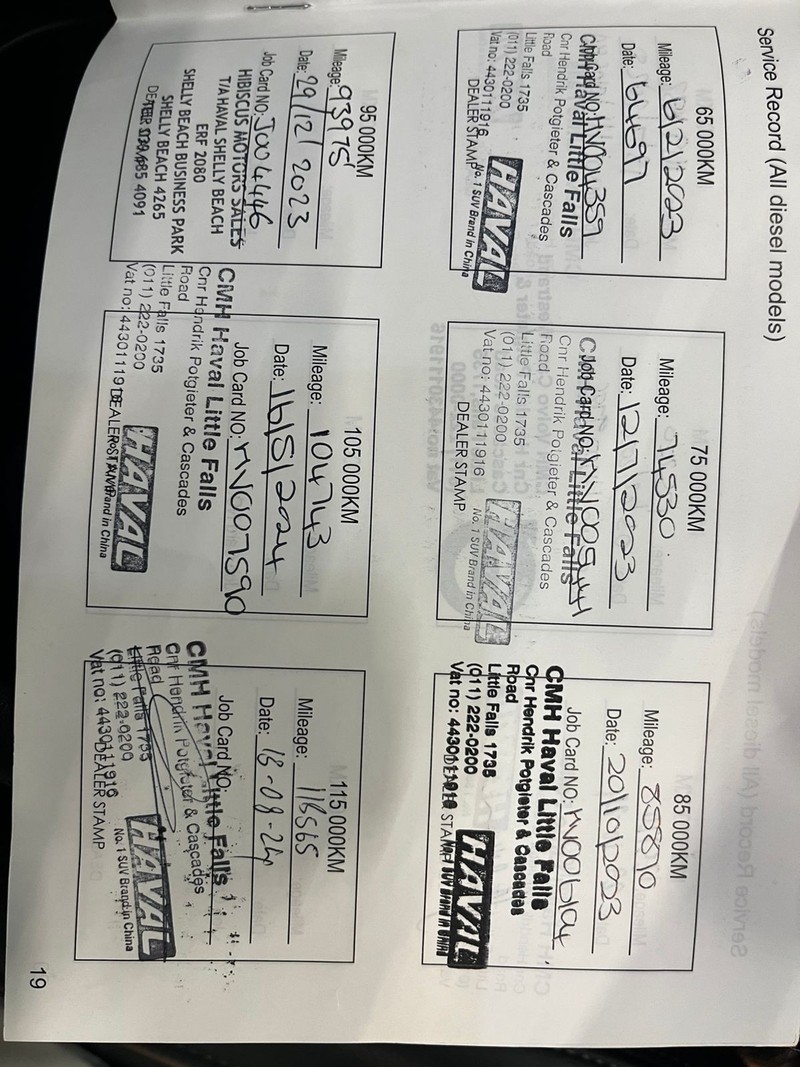 Service Record (All diesel models)
65 000KM
Mileage: 6/2/2023
Date: 64697
Job Card NO: HV004359
CMH Haval Little Falls
Cnr Hendrik Potgieter & Cascades
Road
Little Falls 1735
(011) 222-0200
Vat no: 4430111916
DEALER STAMP
HAVAL
No. 1 SUV Brand in China
75 000KM
Mileage: 74530
Date: 12/7/2023
Job Card NO:
CMH Haval Little Falls
Cnr Hendrik Potgieter & Cascades
Road
Little Falls 1735
(011) 222-0200
Vat no: 4430111916
DEALER STAMP
HAVAL
No. 1 SUV Brand in China
85 000KM
Mileage: 85870
Date: 20/10/2023
Job Card NO:
CMH Haval Little Falls
Cnr Hendrik Potgieter & Cascades
Road
Little Falls 1735
(011) 222-0200
Vat no: 4430111916
DEALER STAMP
HAVAL
No. 1 SUV Brand in China
95 000KM
Mileage: 93975
Date: 29/12/2023
Job Card NO: J004446
HIBISCUS MOTORS SALES
T/A HAVAL SHELLY BEACH
ERF 2080
SHELLY BEACH BUSINESS PARK
SHELLY BEACH 4265
DEALER STAMP
105 000KM
Mileage: 104743
Date: 16/5/2024
Job Card NO: HV007590
CMH Haval Little Falls
Cnr Hendrik Potgieter & Cascades
Road
Little Falls 1735
(011) 222-0200
Vat no: 4430111916
DEALER STAMP
HAVAL
No. 1 SUV Brand in China
115 000KM
Mileage: 116565
Date: 13-09-24
Job Card NO:
CMH Haval Little Falls
Cnr Hendrik Potgieter & Cascades
Road
Little Falls 1735
(011) 222-0200
Vat no: 4430111916
DEALER STAMP
HAVAL
No. 1 SUV Brand in China
19